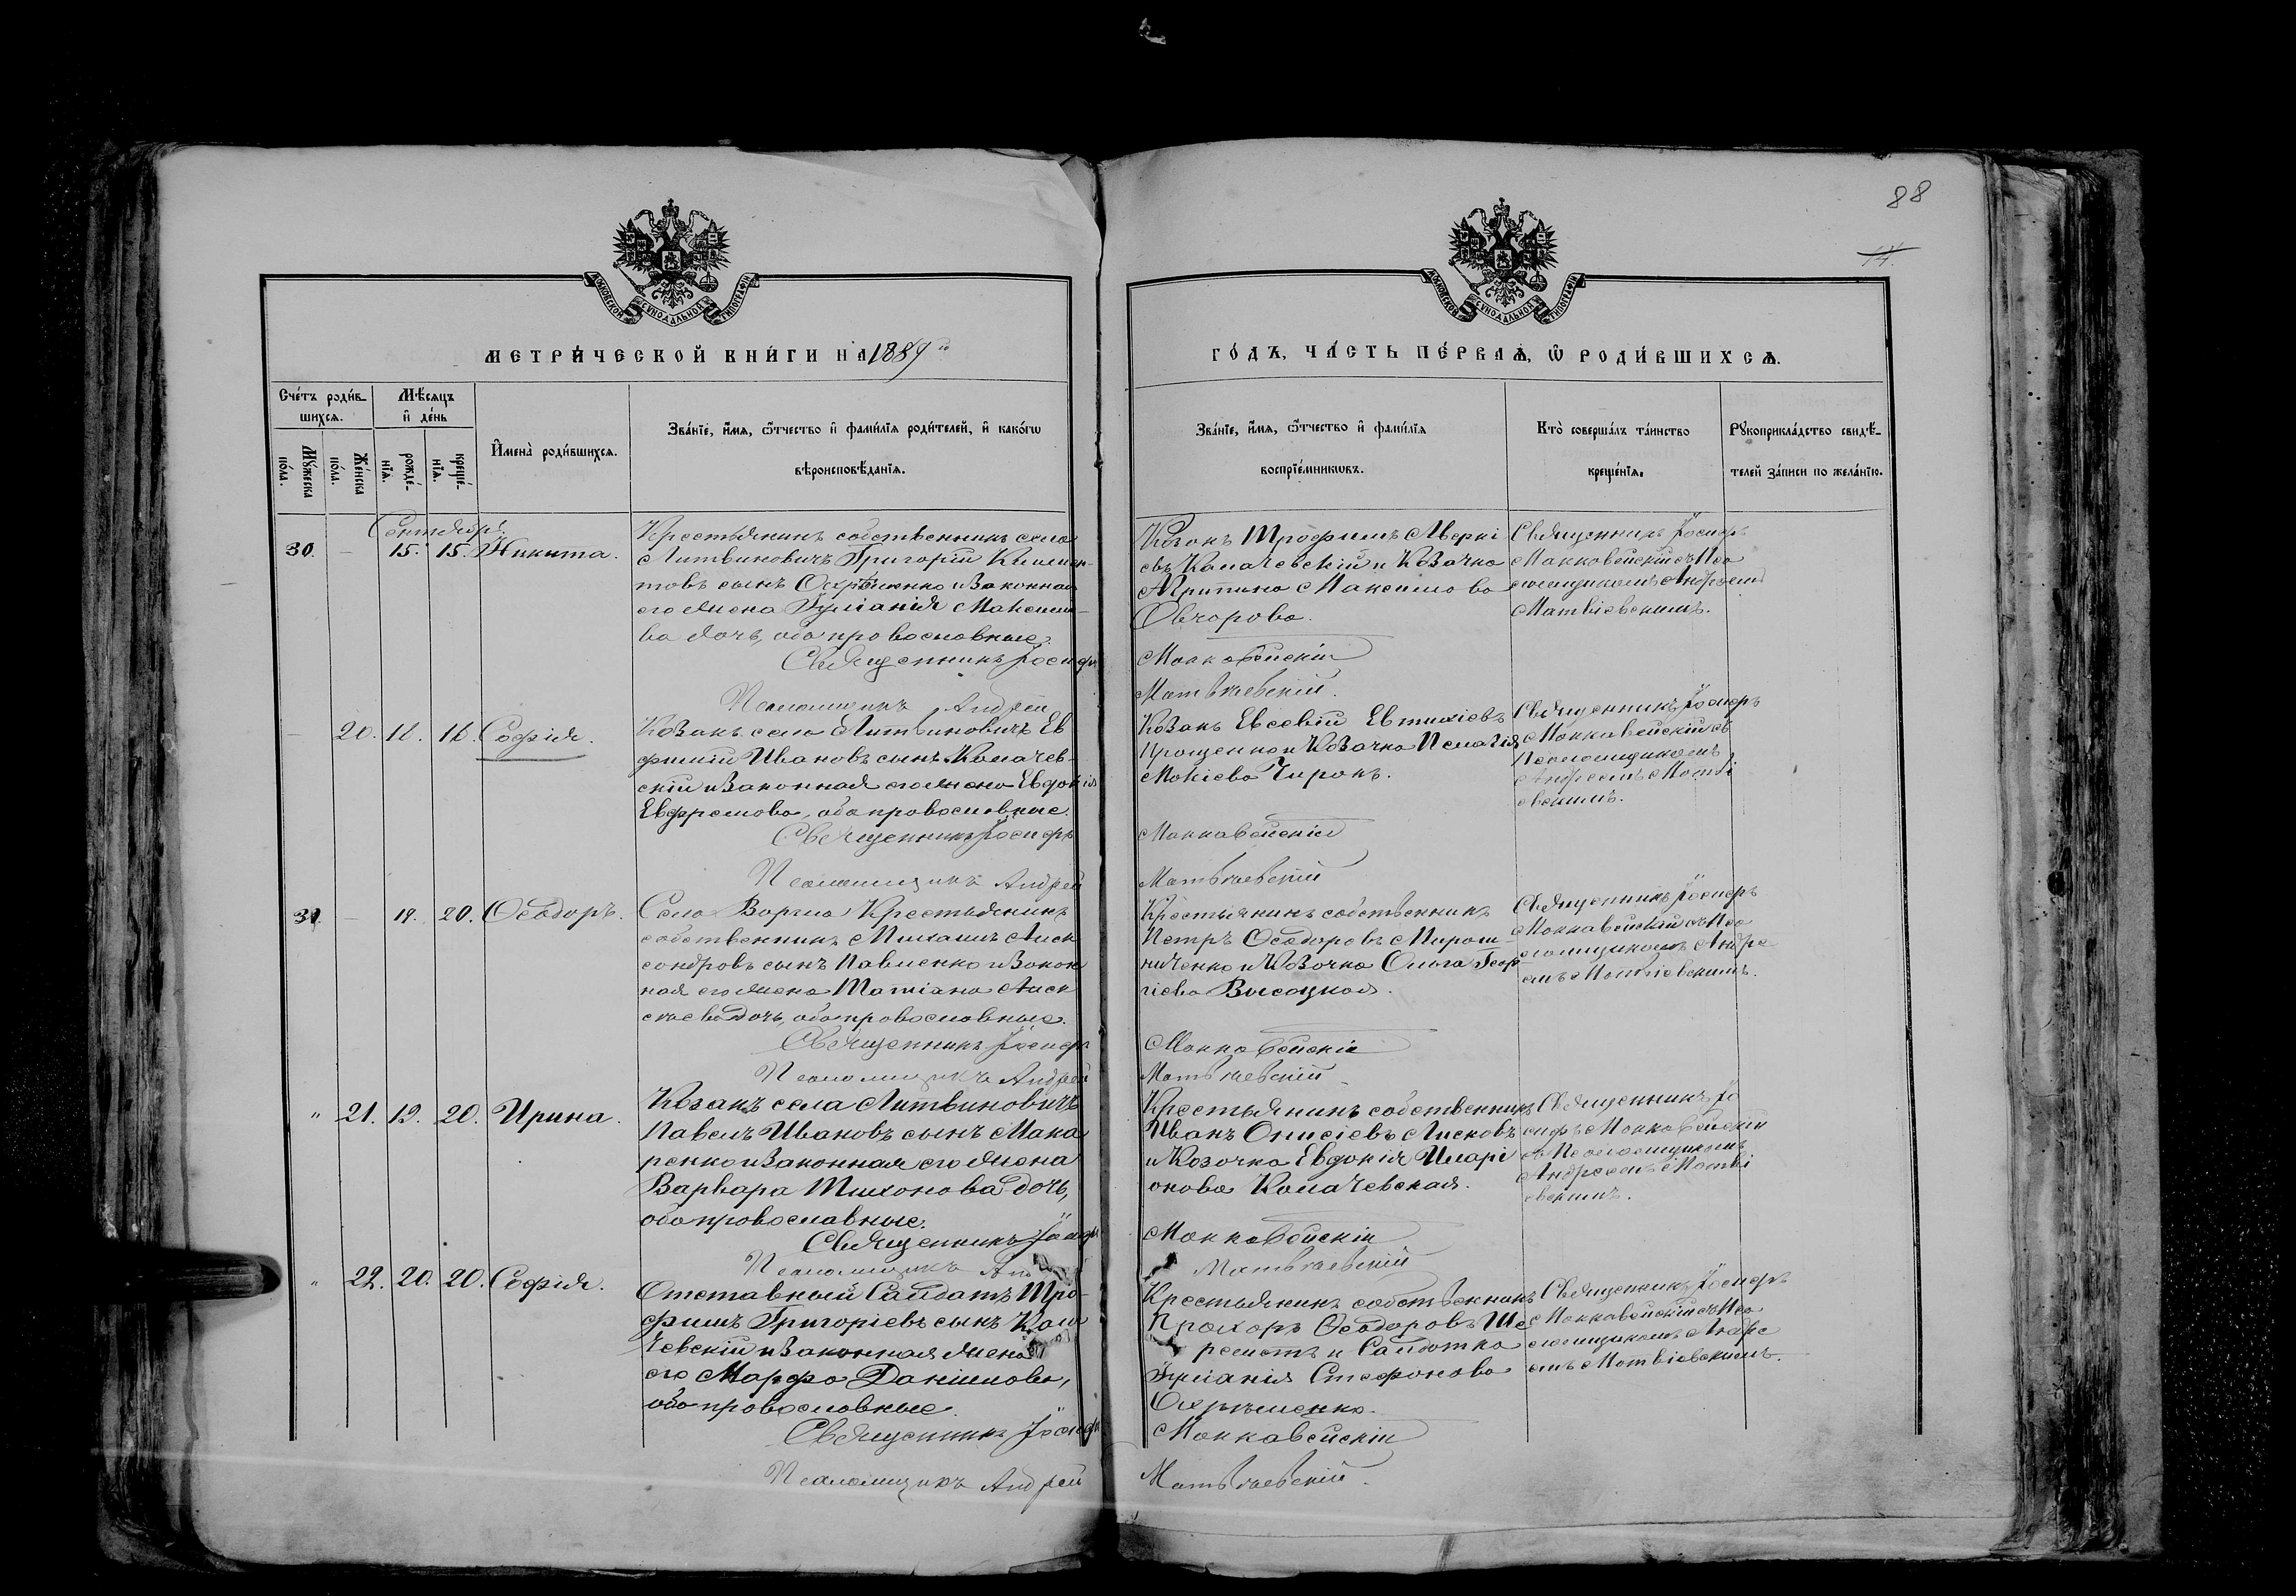 88
14.
МОСКОВСКОЙ СѴНОДАЛЬНОЙ ТИПОГРАФІИ
МОСКОВСКОЙ СѴНОДАЛЬНОЙ ТИПОГРАФІИ
МЕТРИ́ЧЕСКОЙ КНИ́ГИ НА 1889 й
ГО́ДЪ, ЧА́СТЬ ПЕ́РВАѦ, Ѡ РОДИ́ВШИХСѦ.
Сче́тъ роди́в-
шихсѧ.
Мѣ́сѧцъ
и҆ де́нь
Мꙋ́жеска
по́ла.
Же́нска
по́ла.
рожде́-
нїѧ.
креще́-
нїѧ.
И҆мена̀ роди́вшихсѧ.
Зва́нїе, и҆́мѧ, ѻ҆́тчество и҆ фами́лїѧ роди́телей, и҆ како́гѡ
вѣроисповѣ́данїѧ.
Зва́нїе, и҆́мѧ, ѻ҆́тчество и҆ фами́лїѧ
воспрїе́мникѡвъ.
Кто̀ соверша́лъ та́инство
креще́нїѧ.
Рꙋкоприкла́дство свидѣ́-
телей за́писи по жела́нїю.
Сентябрь
30. — 15. 15. Никита.
Крестьянинъ собственникъ села
Литвиновичъ Григорій Климен-
товъ сынъ Охрѣменко и законная
его жена Іуліанія Максимо-
ва дочь, оба православные.
Священникъ Іосифъ
Псаломщикъ Андрей
Козакъ Трофимъ Аверкі
евъ Комачевскій и Козачка
Агрипина Максимова
Овчарова.
Маккавейскій
Матвѣевскій.
Священникъ Іосифъ
Маккавейскій съ Пса
ломщикомъ Андреемъ
Матвіевскимъ.
— 20. 16. 16. Софія.
Козакъ села Литвиновичъ Ев
фимій Ивановъ сынъ Комачев-
скій и законная его жена Евдокія
Евфремова, оба православные.
Священникъ Іосифъ
Псаломщикъ Андрей
Козакъ Евсевій Евтихіевъ
Прощенко и Козачка Пелагія
Мокіева Чирокъ.
Маккавейскій
Матвѣевскій
Священникъ Іосифъ
Маккавейскій съ
Псаломщикомъ
Андреемъ Матві
евскимъ.
31. — 19. 20. Ѳеодоръ.
Села Воргла Крестьянинъ
собственникъ Михаилъ Алек
сандровъ сынъ Павленко и закон
ная его жена Татіана Алек
сѣева дочь, оба православные.
Священникъ Іосифъ
Псаломщикъ Андрей
Крестьянинъ собственникъ
Петръ Ѳеодоровъ Мирош-
ниченко и Козачка Ольга Геор
гіева Высоцкая.
Маккавейскій
Матвѣевскій
Священникъ Іосифъ
Маккавейскій съ Пса
ломщикомъ Андре
емъ Матвіевскимъ.
" 21. 19. 20. Ирина.
Козакъ села Литвиновичъ
Павелъ Ивановъ сынъ Мака
ренко и законная его жена
Варвара Тихонова дочь,
оба православные.
Священникъ Іосифъ
Псаломщикъ
Крестьянинъ собственникъ
Иванъ Онисіевъ Лисковъ
и Козачка Евдокія Иларі
онова Комачевская.
Маккавейскій
Матвѣевскій
Священникъ Іо
сифъ Маккавейскій
съ Псаломщикомъ
Андреемъ Матві
евскимъ.
" 22. 20. 20. Софія.
Отставный Салдатъ Тро-
фимъ Григоріевъ сынъ Кома
чевскій и законная жена
его Марфа Даніилова,
оба православные.
Священникъ Іосифъ
Псаломщикъ Андрей
Крестьянинъ собственникъ
Прохоръ Ѳеодоровъ Ше
реметъ и Салдатка
Іуліанія Стефанова
Охрѣменко.
Маккавейскій
Матвѣевскій.
Священникъ Іосифъ
Маккавейскій съ Пса
ломщикомъ Андре
емъ Матвіевскимъ.